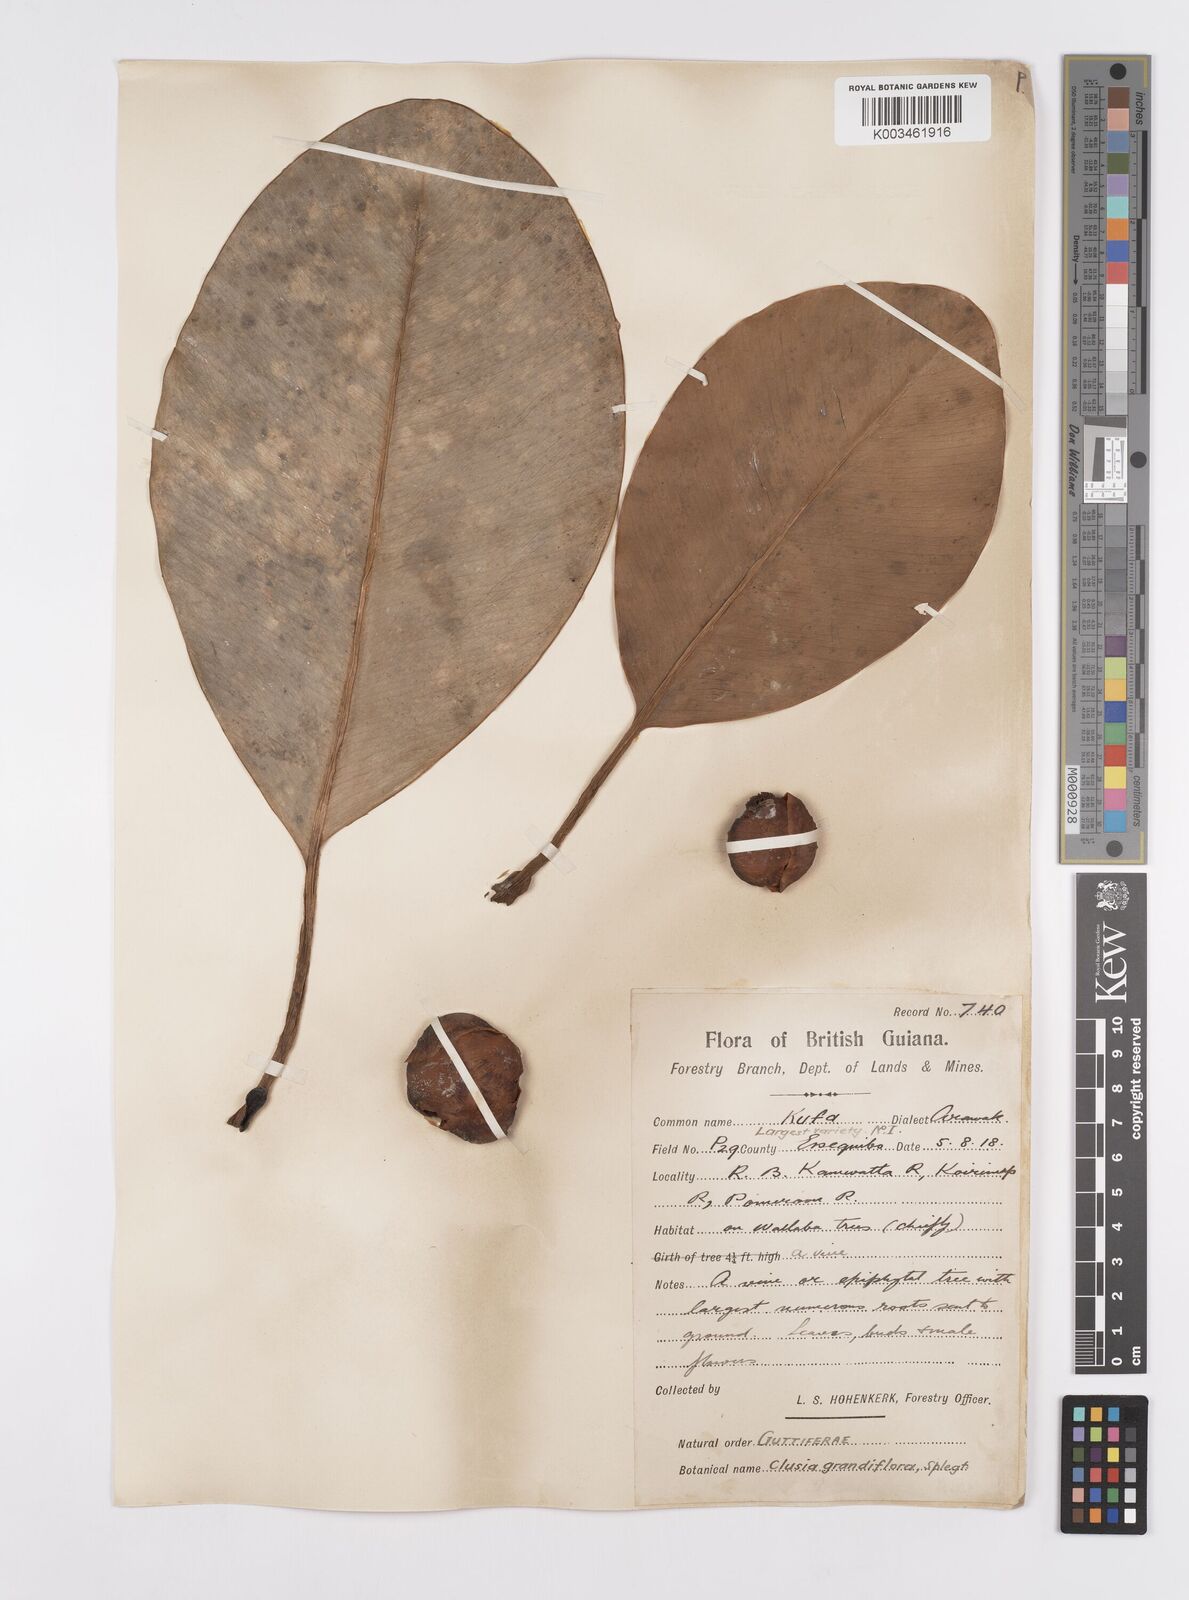 P.
ROYAL BOTANIC GARDENS KEW
K003461916
Record No. 740
Flora of British Guiana.
Forestry Branch, Dept. of Lands & Mines.
Common name Kufa Dialect Arawak
Largest variety No I.
Field No. P29. County Essequibo Date 5.8.18.
Locality R. B. Kamwatta R,
R, Pomeroon R.
Habitat on Wallaba trees (chiefly)
Girth of tree 4½ ft. high a vine
Notes A vine or epiphytal tree with
largest numerous roots sent to
ground. Leaves, buds & male
flowers
Collected by
L. S. HOHENKERK, Forestry Officer.
Natural order GUTTIFERAE
Botanical name Clusia grandiflora, Splegt.
inches
centimeters
Density
Don Williams
M000928
Royal Botanic Gardens
Kew
copyright reserved
0 1 2 3 4 5 6 7 8 9 10
cm